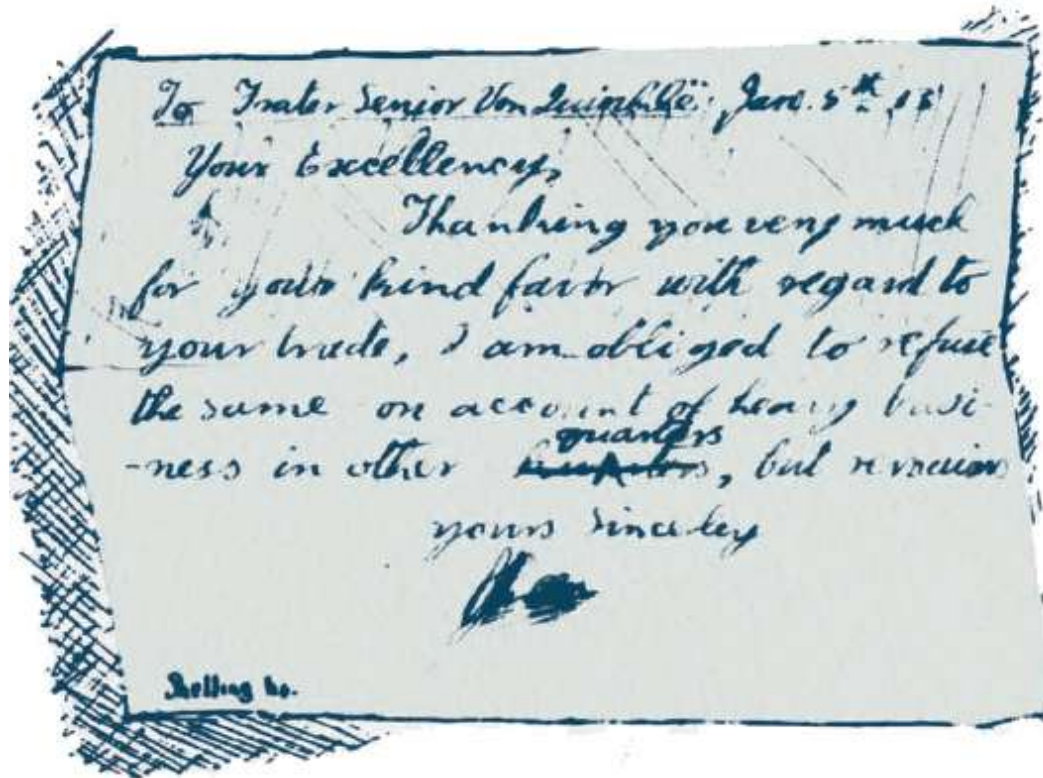 To Frater Senior Von Jan. 5th 18
Your Excellency,
Thanking you very much
for your kind favor with regard to
your trade, I am obliged to refuse
the same on account of heavy busi-
-ness in other quarters, but remain
yours sincerley